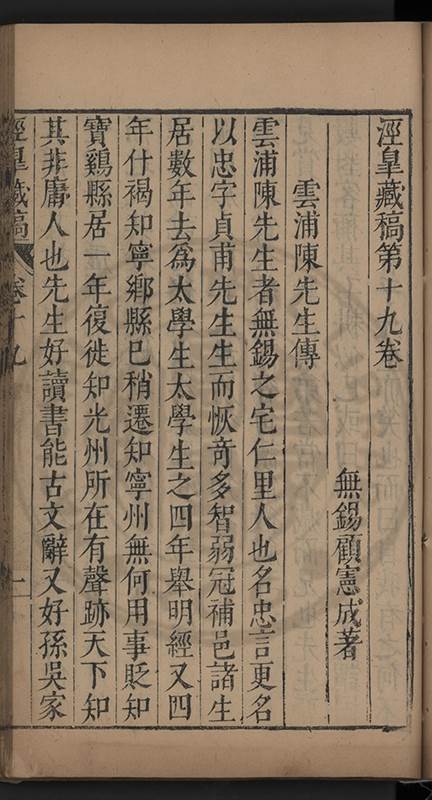 涇臯藏稿第十九卷
無錫顧憲成著
雲浦陳先生傳
雲浦陳先生者無錫之宅仁里人也名忠言更名
以忠字貞甫先生生而恢竒多智弱冠補邑諸生
居數年去爲太學生太學生之四年舉明經又四
年什褐知寧鄉縣巳稍遷知寧州無何用事貶知
寶鷄縣居一年復徙知光州所在有聲跡天下知
其非庸人也先生好讀書能古文辭又好孫吳家
涇臯藏稿
卷十九
一